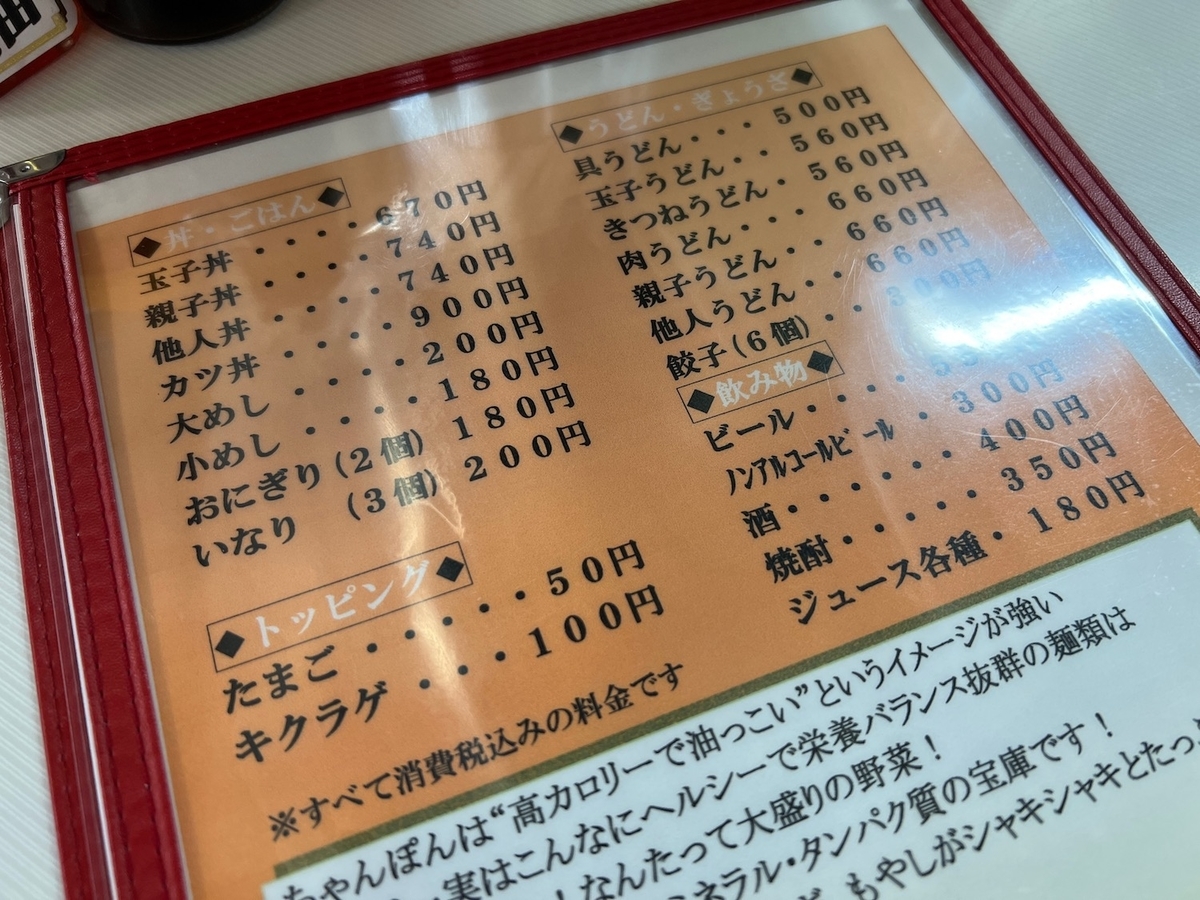 ◆丼・ごはん◆
玉子丼・・・・670円
親子丼・・・・・740円
他人丼・・・・・740円
カツ丼・・・・・900円
大めし・・・・・200円
小めし・・・・・180円
おにぎり(2個) 180円
いなり (3個) 200円
◆トッピング◆
たまご・・・・・50円
キクラゲ・・・・100円
※すべて消費税込みの料金です
◆うどん・ぎょうざ◆
具うどん・・・500円
玉子うどん・・560円
きつねうどん・560円
肉うどん・・・660円
親子うどん・・660円
他人うどん・・660円
餃子(6個)・・
◆飲み物◆
ビール・・・・
ノンアルコールビール・300円
酒・・・・・・400円
焼酎・・・・・350円
ジュース各種・180円
ちゃんぽんは“高カロリーで油っこい”というイメージが強い
実はこんなにヘルシーで栄養バランス抜群の麺類は
なんたって大盛りの野菜！
ミネラル・タンパク質の宝庫です！
もやしがシャキシャキとたっ